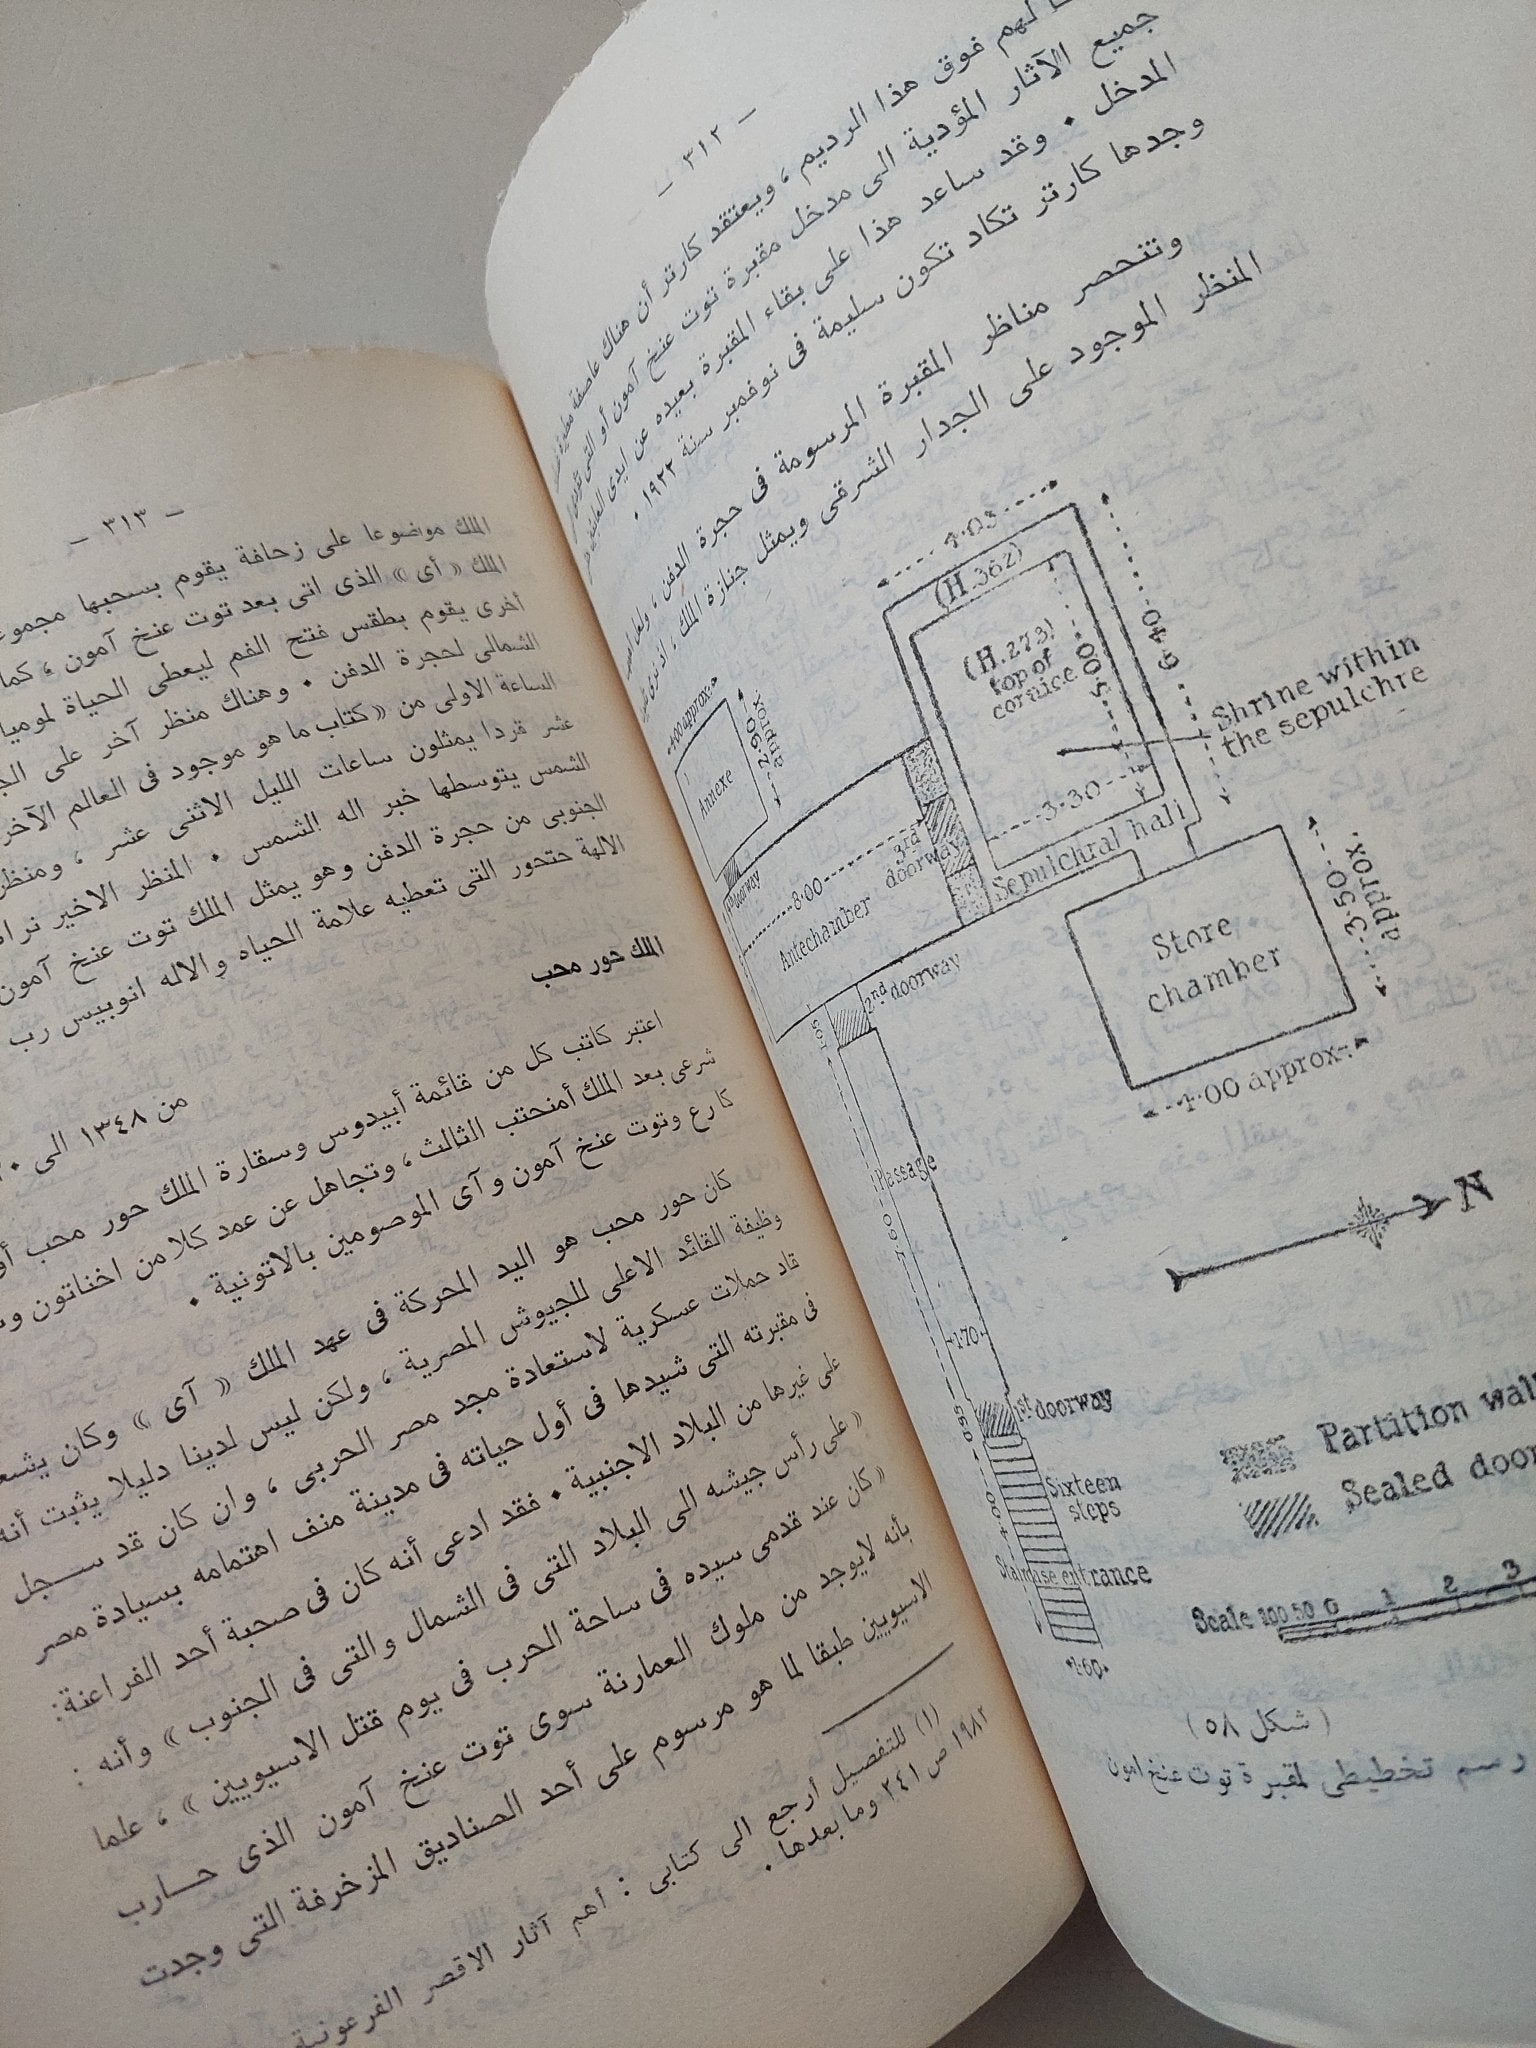 - ٣١٢ -
لهم فوق هذا الرديم ، ويعتقد كارتر أن هناك عاصفة
جميع الآثار المؤدية الى مدخل مقبرة توت عنخ آمون أو التى
المدخل . وقد ساعد هذا على بقاء المقبرة بعيده عن ايدى
وجدها كارتر تكاد تكون سليمة فى نوفمبر سنة ١٩٢٢ .
وتنحصر مناظر المقبرة المرسومة فى حجرة الدفن ، ولعل
المنظر الموجود على الجدار الشرقى ويمثل جنازة الملك ، اذ نرى
4·03
(H. 362)
(H. 273)
top of
cornice
5·00
6·40
Shrine within
the sepulchre
3·30
Sepulchral hall
4·00 approx.
Annexe
2·90
approx
doorway
3rd
doorway
8·00
Antechamber
Store
chamber
3·50
approx.
4·00 approx.
2nd doorway
Passage
7·60
N
1·70
1st doorway
Sixteen
steps
4·00
Staircase entrance
1·60
Partition wall
Sealed door
Scale 100 50 0 1 2 3
( شكل ٥٨ )
رسم تخطيطى لمقبرة توت عنخ امون
- ٣١٣ -
الملك موضوعا على زحافة يقوم بسحبها
الملك « أى » الذى اتى بعد توت عنخ آمون ، كما
أخرى يقوم بطقس فتح الفم ليعطى الحياة
الشمالى لحجرة الدفن . وهناك منظر آخر على
الساعة الاولى من « كتاب ما هو موجود فى العالم الآخر
عشر قردا يمثلون ساعات الليل الاثنى عشر ،
الشمس يتوسطها خبر اله الشمس . المنظر الاخير
الجنوبى من حجرة الدفن وهو يمثل الملك توت عنخ آمون
الالهة حتحور التى تعطيه علامة الحياه والاله انوبيس رب
الملك حور محب
من ١٣٤٨ الى
اعتبر كاتب كل من قائمة أبيدوس وسقارة الملك حور محب
شرعى بعد الملك أمنحتب الثالث ، وتجاهل عن عمد كلا من اخناتون
كارع وتوت عنخ آمون وآى الموصومين بالاتونية .
كان حور محب هو اليد المحركة فى عهد الملك « آى » وكان
وظيفة القائد الاعلى للجيوش المصرية ، ولكن ليس لدينا دليلا يثبت أنه
قاد حملات عسكرية لاستعادة مجد مصر الحربى ، وان كان قد سجل
فى مقبرته التى شيدها فى أول حياته فى مدينة منف اهتمامه بسيادة مصر
على غيرها من البلاد الاجنبية . فقد ادعى أنه كان فى صحبة أحد الفراعنة :
« على رأس جيشه الى البلاد التى فى الشمال والتى فى الجنوب » وأنه :
« كان عند قدمى سيده فى ساحة الحرب فى يوم قتل الاسيويين » ، علما
بأنه لايوجد من ملوك العمارنة سوى توت عنخ آمون الذى حارب
الاسيويين طبقا لما هو مرسوم على أحد الصناديق المزخرفة التى وجدت
(١) للتفصيل أرجع الى كتابى : أهم آثار الاقصر الفرعونية
١٩٨٢ ص ٢٤١ وما بعدها .